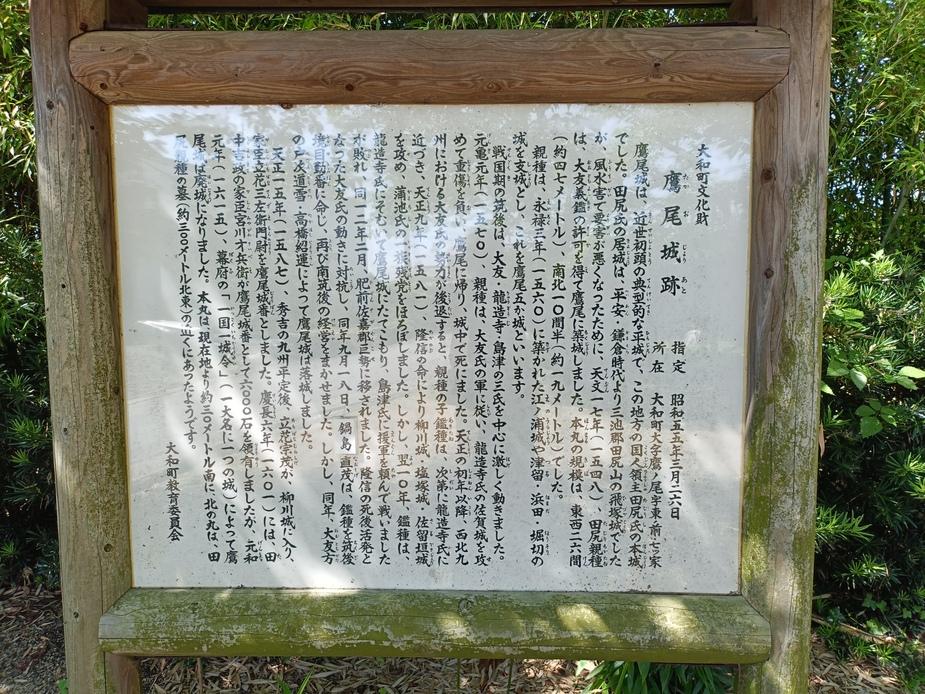 大和町文化財
鷹尾城跡
指定 昭和五五年三月二六日
所在 大和町大字鷹ノ尾字東・前・七ツ家
鷹尾城は、近世初頭の典型的な平城で、この地方の国人領主田尻氏の本城
でした。田尻氏の居城は、平安・鎌倉時代より三池郡田尻山の飛塚城でした
が、風水害で要害が悪くなったために、天文一七年(一五四八)、田尻親種
は、大友義鑑の許可を得て鷹尾に築城しました。本丸の規模は、東西二六間
(約四七メートル)、南北一〇間半(約一九メートル)でした。
親種は、永禄三年(一五六〇)に築かれた江ノ浦城や津留・浜田・堀切の
城を支城とし、これを鷹尾五か城といいます。
戦国期の筑後は、大友・龍造寺・島津の三氏を中心に激しく動きました。
元亀元年(一五七〇)、親種は、大友氏の軍に従い、龍造寺氏の佐賀城を攻
めて重傷を負い、鷹尾に帰り、城中で死にました。天正の初年以降、西北九
州における大友氏の勢力が後退すると、親種の子鑑種は、次第に龍造寺氏に
近づき、天正九年(一五八一)、隆信の命により柳川城・塩塚城・佐留垣城
を攻め、蒲池氏の一族残党をほろぼしました。しかし、翌一〇年、鑑種は、
龍造寺氏にそむいて鷹尾城にたてこもり、島津氏に援軍を頼んで戦いました
が敗れ、同一二年二月、肥前佐嘉郡巨勢に移されました。隆信の死後活発と
なった大友氏の動きに対抗し、同年九月一八日、鍋島直茂は、鑑種を筑後
境目動番に命じ、再び南筑後の経営をまかせました。しかし、同年、大友方
の戸次道雪・高橋紹運によって鷹尾城は落城しました。
天正一五年(一五八七)、秀吉の九州平定後、立花宗茂が、柳川城に入り、
家臣立花三左衛門尉を鷹尾城番としました。慶長六年(一六〇一)には、田
中吉政の家臣宮川才兵衛が鷹尾城番として六〇〇〇石を領有しましたが、元和
元年(一六一五)、幕府の「一国一城令」(一大名に一つの城)によって鷹
尾城は廃城になりました。本丸は、現在地より約三〇メートル南に、北の丸は、田
尻親種の墓(約三〇メートル北東)の近くにあったようです。
大和町教育委員会